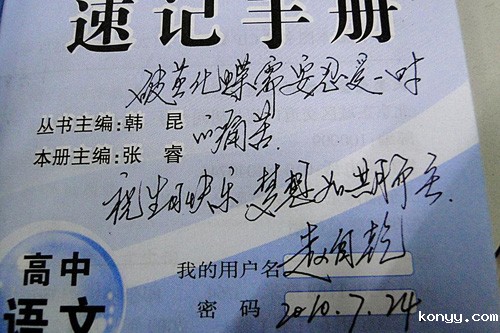 速记手册
破茧化蝶需要忍受一时
丛书主编:韩 昆
的痛苦.
本册主编:张 睿
祝生日快乐 梦想如期而至.
高中
语文
我的用户名
密 码 2010.7.24
konyy.com